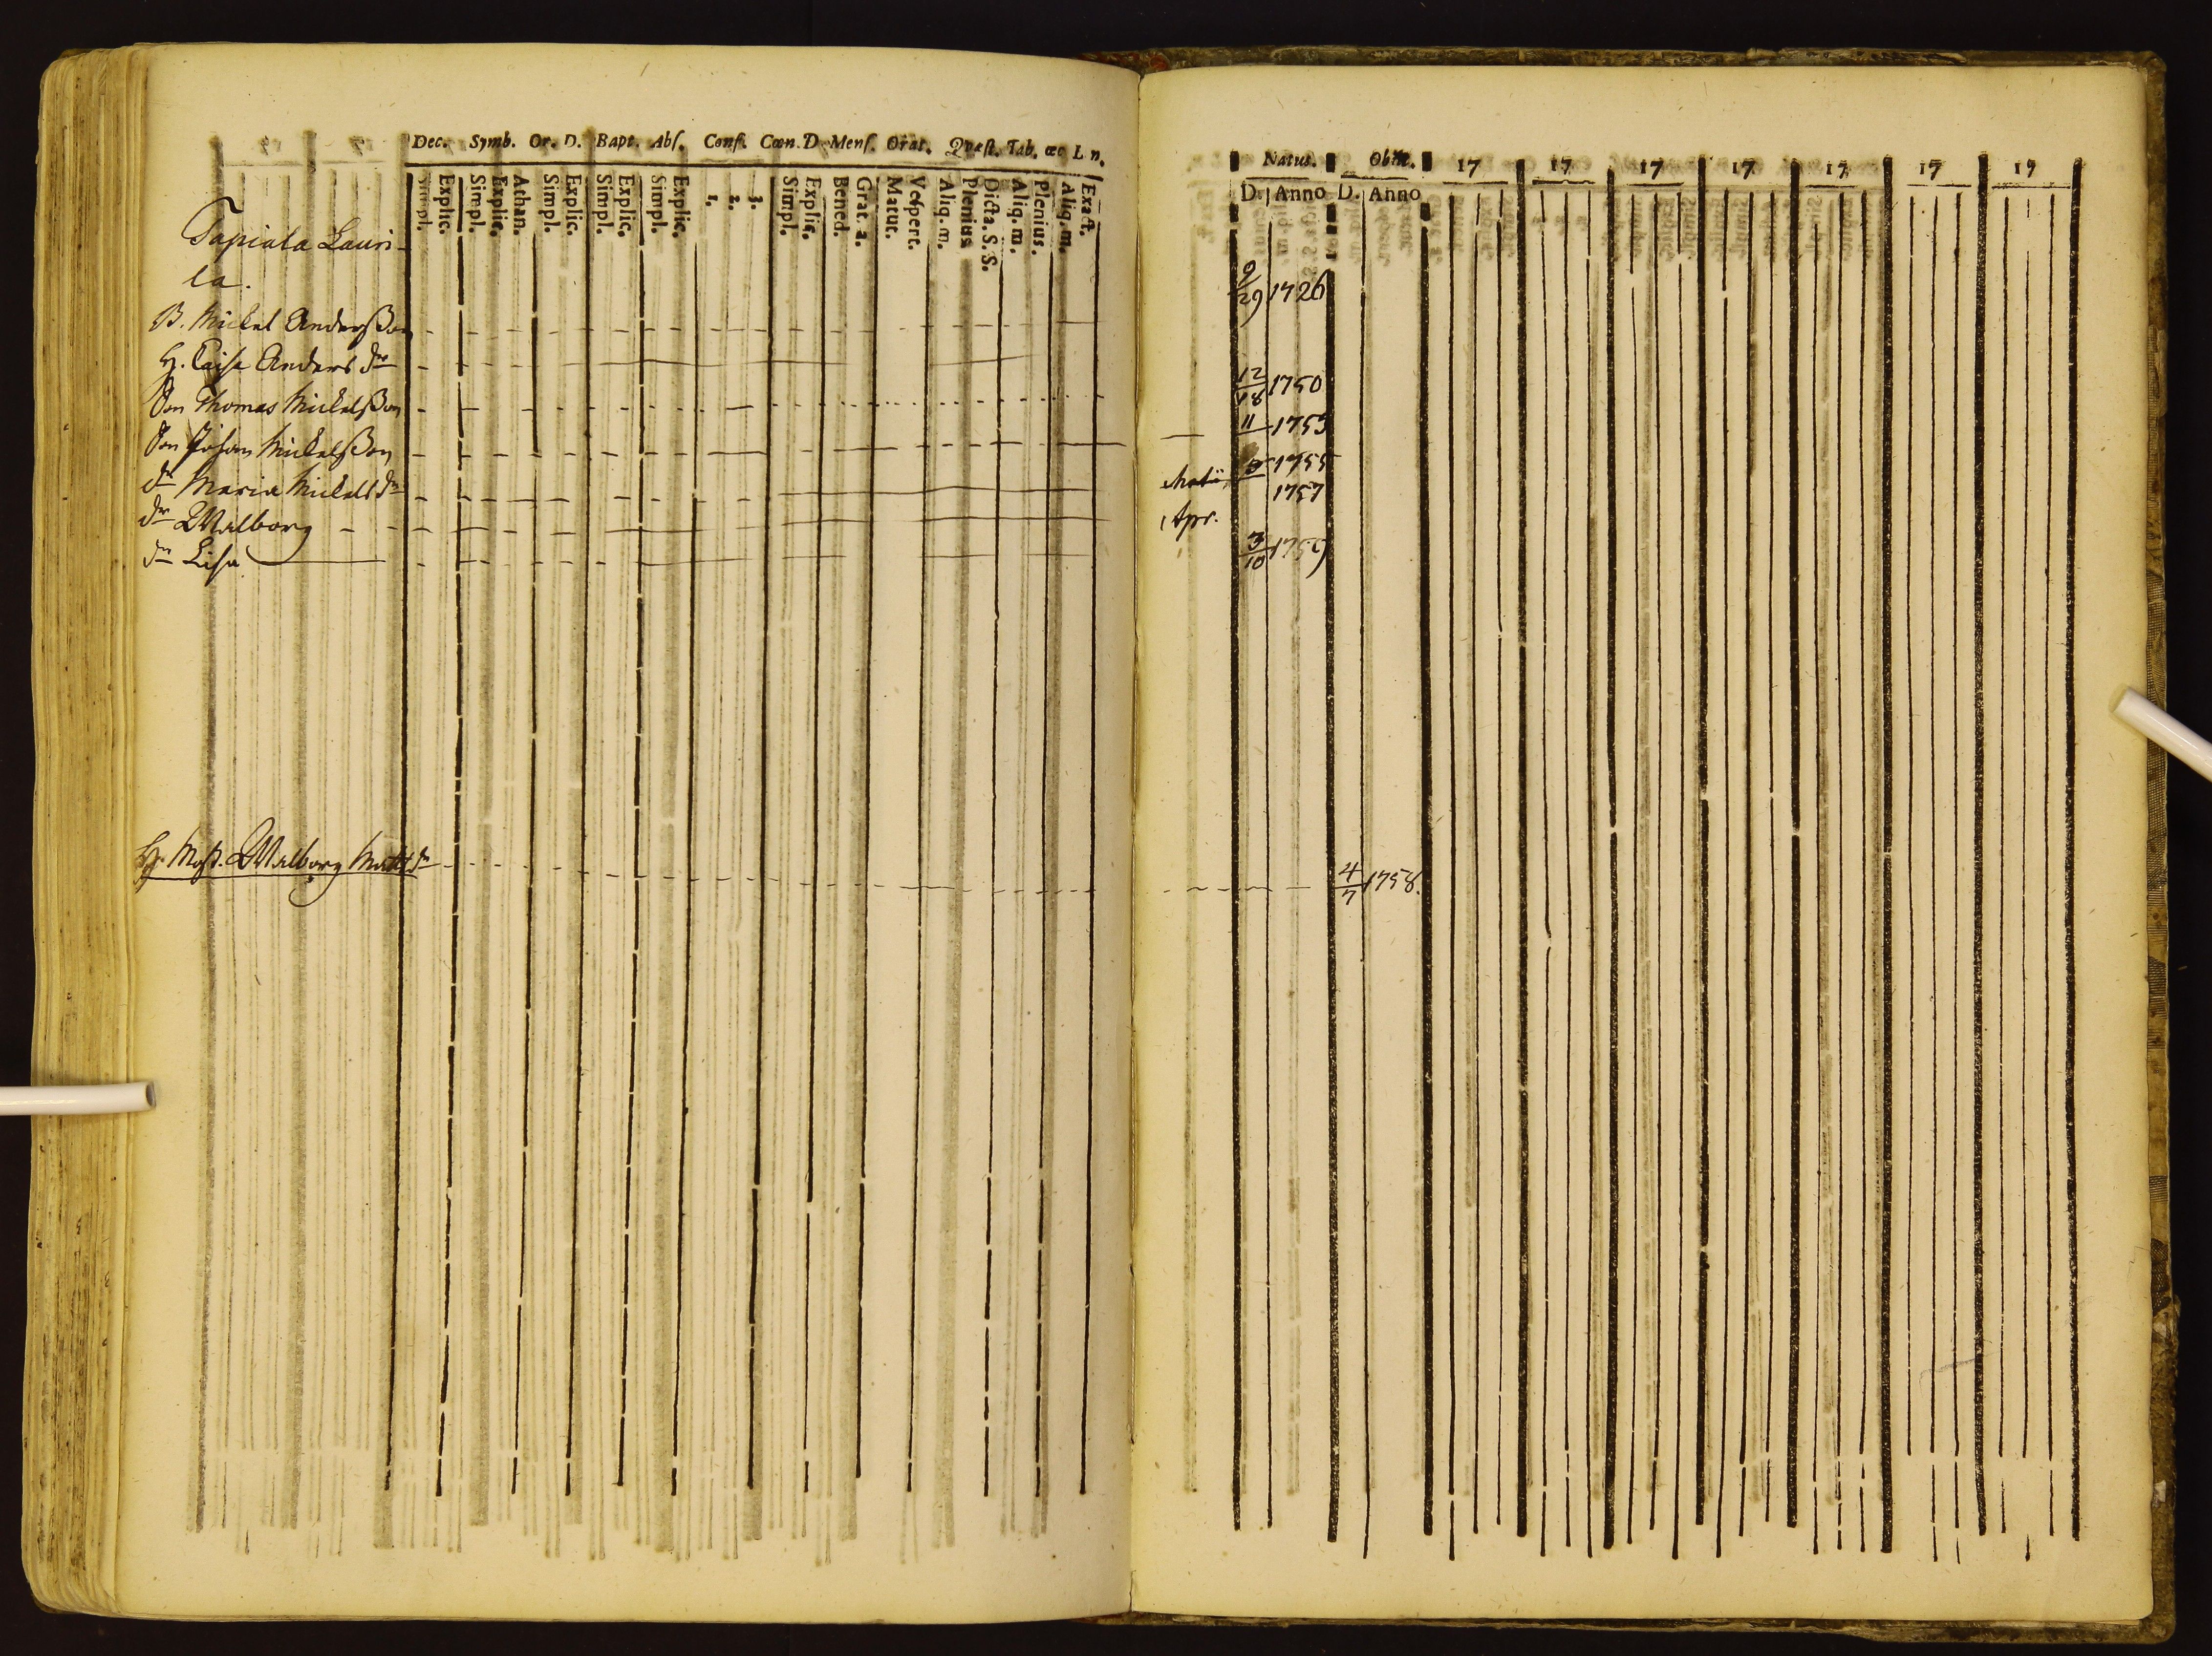 Dec. Symb. Or. D. Bapt. Abſ. Conf. Cœn. D Menſ. Orat. Quæſt. Tab. œc L n.
Simpl. Explic. Simpl. Explic. Athan. Simpl. Explic. Simpl. Explic. Simpl. Explic. 1. 2. 3. Simpl. Explic. Bened. Grat. a. Matut. Veſpert. Aliq. m. Plenius Dicta. S. S. Aliq. m. Plenius. Aliq. m. Exact.
Tapiala Lauri-
la.
B. Mickel Anderßon
H. Caisa Anders dr
Son Thomas Mickelßon
Son Johan Mickelßon
dr Maria Mickels dr
dr Walborg
dr Lisa
H. Mos. Walborg Matts dr
Natus. Obiit. 17 17 17 17 17 17 17
D. Anno D. Anno
9/29 1726
12/18 1750
11 1753
1755
1757
Apr.
3/10 1759
4/7 1758.